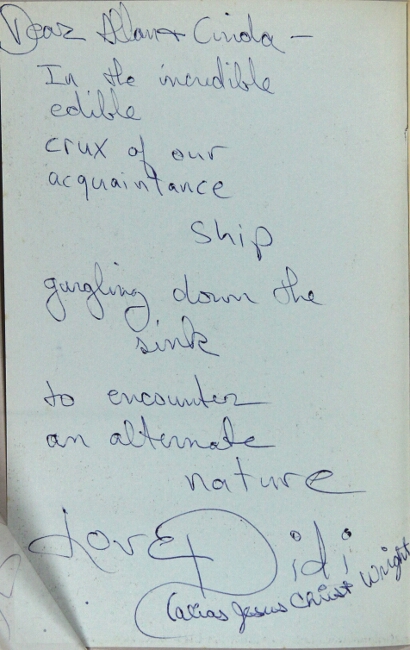 Dear Alan & Cinda —
In the incredible
edible
crux of our
acquaintance
ship
gurgling down the
sink
to encounter
an alternate
nature
Love, Didi
(alias Jesus Christ Wright